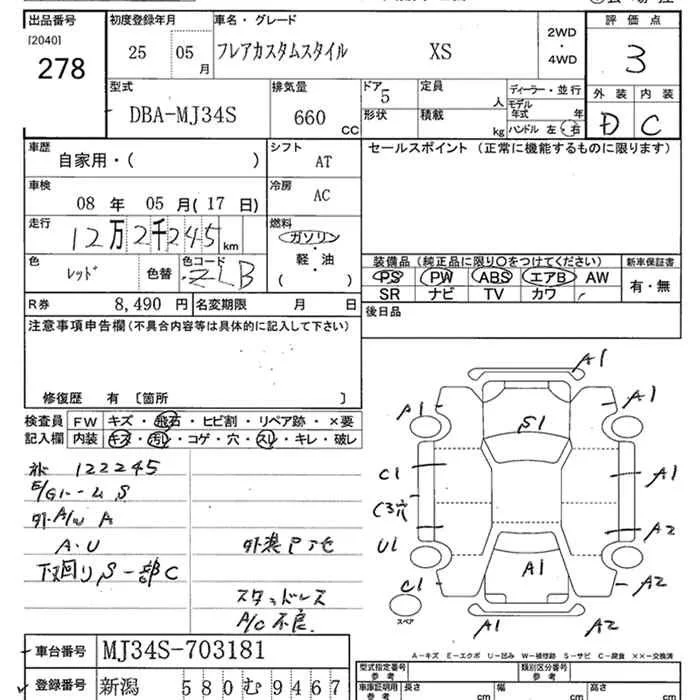 出品番号
[2040]
278
初度登録年月
25 05 月
車名・グレード
フレアカスタムスタイル XS
2WD
・
4WD
評価点
3
外装 内装
D C
型式
DBA-MJ34S
排気量
660 CC
ドア 5
形状
定員 人
積載 kg
ディーラー・並行
モデル年式 年
ハンドル 左・右
車歴
自家用・( )
シフト
AT
セールスポイント (正常に機能するものに限ります)
車検
08 年 05 月(17 日)
冷房
AC
走行
12万2千245 km
燃料
ガソリン
・
軽・油
( )
色
レッド
色替
色コード
ZLB
装備品(純正品に限り○をつけてください)
PS PW ABS エアB AW
SR ナビ TV カワ
新車保証書
有・無
R券 8,490 円
名変期限 月 日
後日品
注意事項申告欄(不具合内容等は具体的に記入して下さい)
修復歴 有 〔箇所 〕
検査員記入欄
FW キズ・飛石・ヒビ割・リペア跡・×要
内装 キズ・汚レ・コゲ・穴・スレ・キレ・破レ
122245
E/Gルーム S
A・U
下回りS一部C
スタッドレス
A/C不良
A1
A1
A1
S1
C1
A1
C3穴
A2
U1
A1
C1
A2
A1
A2
スペア
A-キズ E-エクボ U-凹み W-補修跡 S-サビ C-腐食 ××-交換済
車台番号 MJ34S-703181
登録番号 新潟 580 む 9467
型式指定番号
参考
類別区分番号
参考
車庫証明用
参考
長さ cm
幅 cm
高さ cm